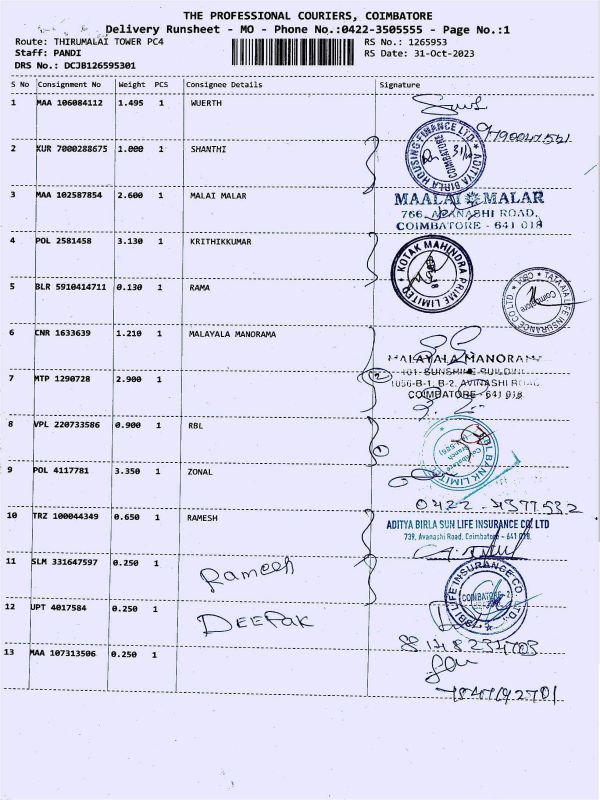 THE PROFESSIONAL COURIERS, COIMBATORE
Delivery Runsheet - MO - Phone No.:0422-3505555 - Page No.:1
Route: THIRUMALAI TOWER PC4 RS No.: 1265953
Staff: PANDI RS Date: 31-Oct-2023
DRS No.: DCJB126595301
S No Consignment No Weight PCS Consignee Details Signature
1 MAA 106084112 1.495 1 WUERTH
ADITYA BIRLA HOUSING FINANCE LTD
COIMBATORE
2 KUR 7000288675 1.000 1 SHANTHI
3 MAA 102587854 2.600 1 MALAI MALAR
MAALAI MALAR
766, AVANASHI ROAD,
COIMBATORE - 641 018
4 POL 2581458 3.130 1 KRITHIKKUMAR
KOTAK MAHINDRA PRIME LIMITED
5 BLR 5910414711 0.130 1 RAMA
TATA AIA LIFE INSURANCE CO LTD
Coimbatore
6 CNR 1633639 1.210 1 MALAYALA MANORAMA
MALAYALA MANORAMA
101- SUNSHINE BUILDING
1056-B-1, B-2, AVINASHI
COIMBATORE - 641 018
7 MTP 1290728 2.900 1
2
8 VPL 220733586 0.900 1 RBL
RBL BANK LIMITED
Coimbatore
Branch
1
9 POL 4117781 3.350 1 ZONAL
0422-4377532
10 TRZ 100044349 0.650 1 RAMESH
ADITYA BIRLA SUN LIFE INSURANCE CO LTD
739, Avanashi Road, Coimbatore - 641 018.
11 SLM 331647597 0.250 1 Rameesh
SBI LIFE INSURANCE CO. LTD.
COIMBATORE-2
12 UPT 4017584 0.250 1 DEEPAK
13 MAA 107313506 0.250 1